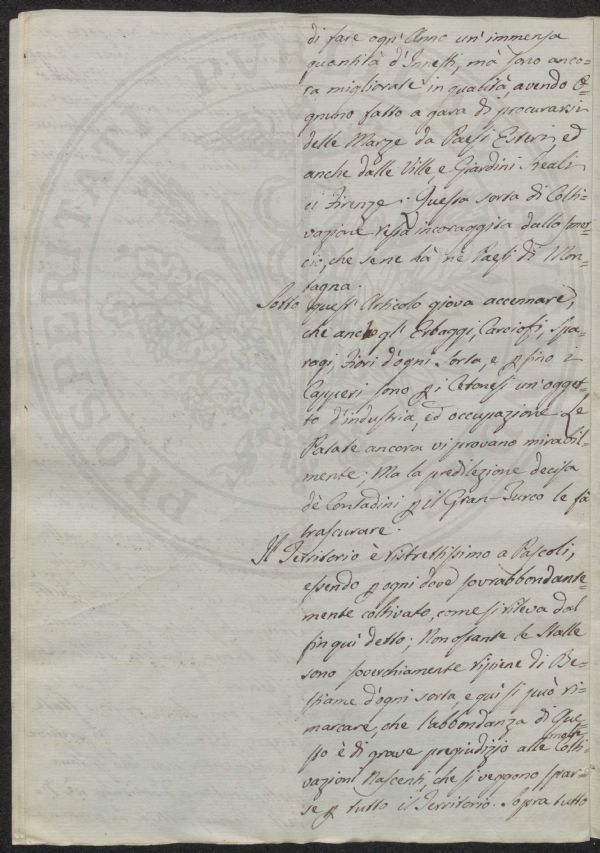 di fare ogn' Anno un' immensa
quantità d'Innesti, mà sono anco-
ra migliorate in qualità, avendo O-
gnuno fatto a gara di procurarsi
delle Marze da Paesi Esteri, ed
anche dalle Ville, e Giardini Reali
di Firenze. Questa sorta di Colti-
vazione resta incoraggita dallo smer-
cio, che se ne hà nè Paesi di Mon-
tagna.
Sotto quest' Articolo giova accennare,
che anche gli Erbaggi, Carciofi, Spa-
ragi, Fiori d'ogni sorta, e p fino i
Capperi sono p i Cetonesi un' ogget-
to d'industria, ed occupazione. Le
Patate ancora vi provano mirabil-
mente; Ma la predilezione decisa
dè Contadini p il Gran-Turco le fà
trascurare.
Il Territorio è ristrettissimo a Pascoli,
essendo p ogni dove sovrabbondante-
mente coltivato, come si rileva dal
fin qui detto; Non ostante le Stalle
sono soverchiamente ripiene di Be-
stiame d'ogni sorta, e quì si può ri-
marcare, che l'abbondanza di Que-
sto è di grave pregiudizio alle molte Colti-
vazioni Nascenti, che si veggono spar-
se p tutto il Territorio. Sopra tutto
PROSPERITATI PUB